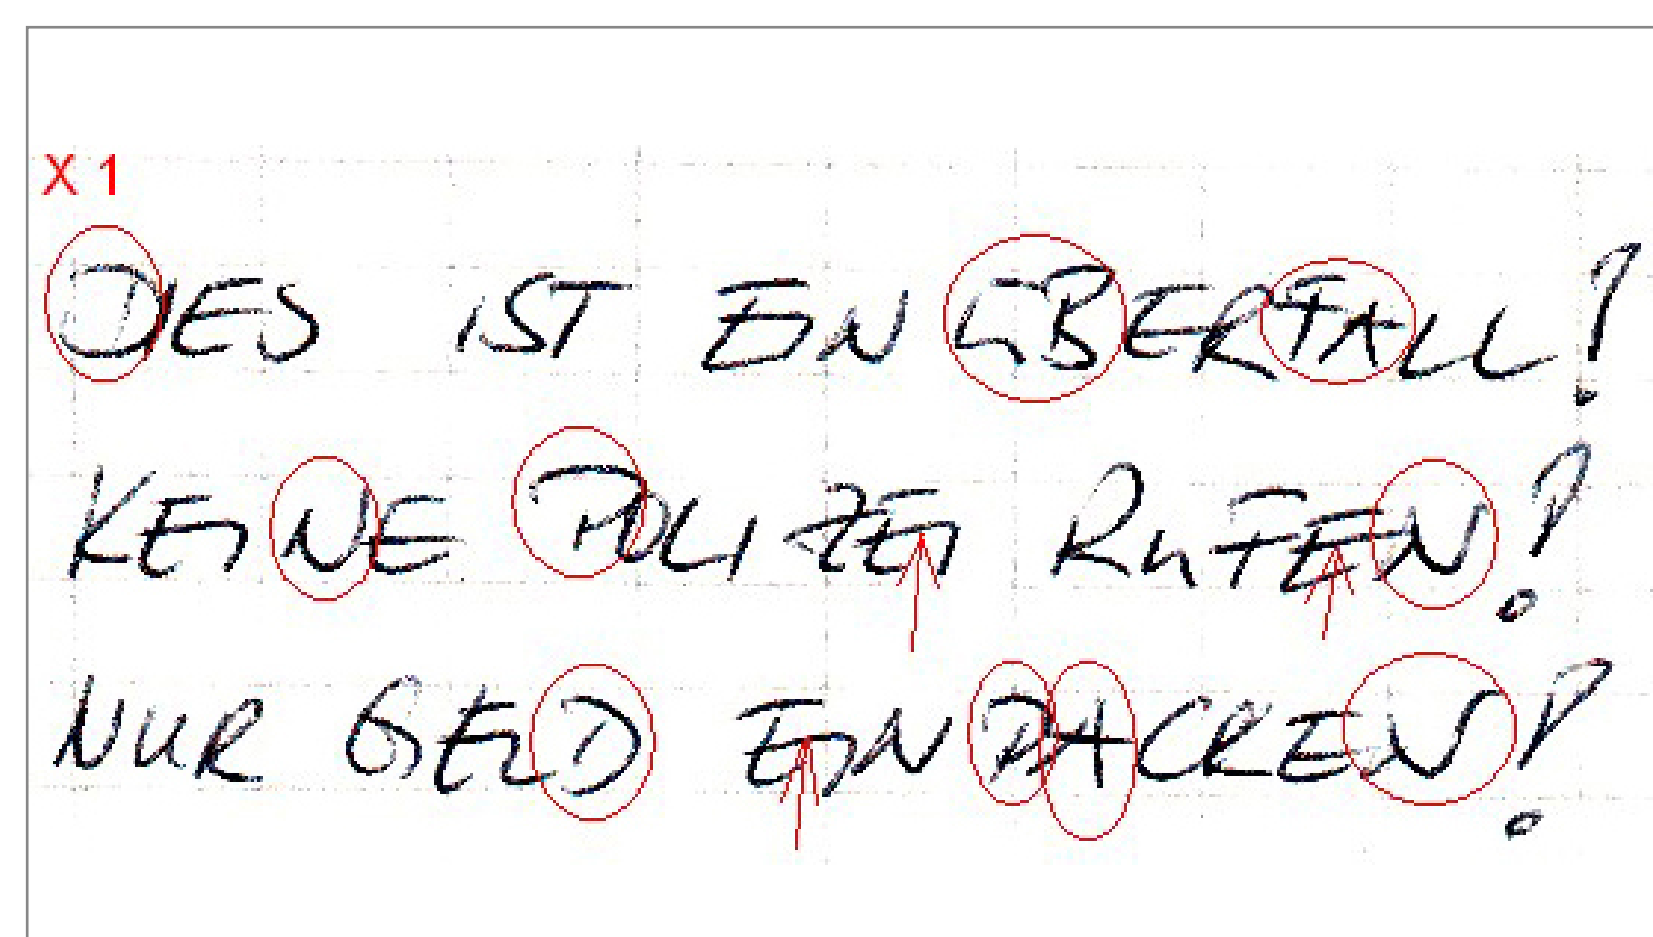 X 1
DIES IST EIN ÜBERFALL!
KEINE POLIZEI RUFEN!
NUR GELD EINPACKEN!